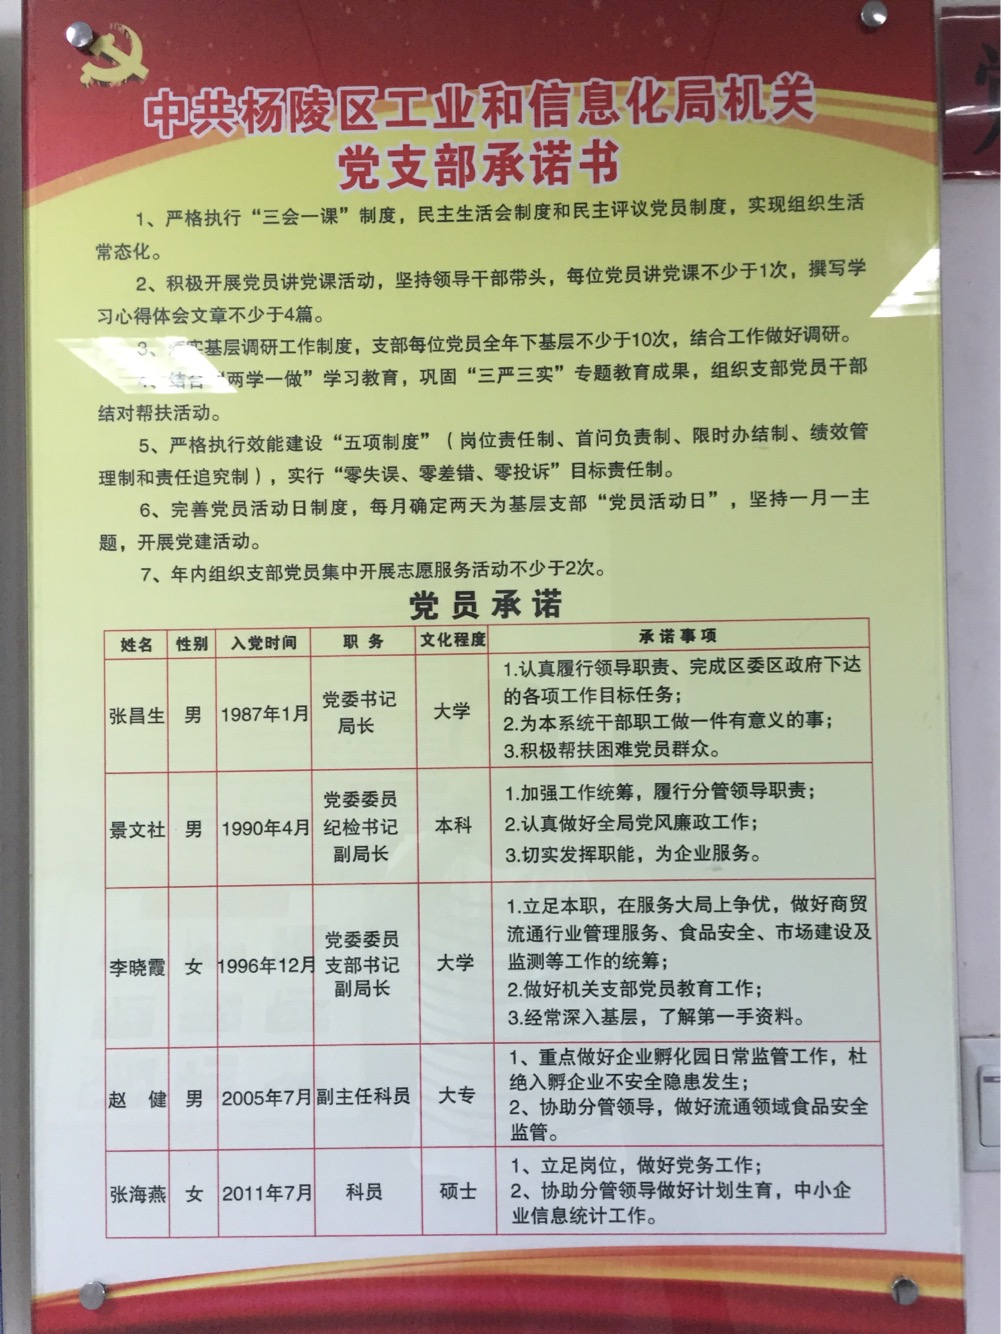 中共杨陵区工业和信息化局机关
党支部承诺书
1、严格执行“三会一课”制度，民主生活会制度和民主评议党员制度，实现组织生活
常态化。
2、积极开展党员讲党课活动，坚持领导干部带头，每位党员讲党课不少于1次，撰写学
习心得体会文章不少于4篇。
3、实基层调研工作制度，支部每位党员全年下基层不少于10次，结合工作做好调研。
4、结合“两学一做”学习教育，巩固“三严三实”专题教育成果，组织支部党员干部
结对帮扶活动。
5、严格执行效能建设“五项制度”（岗位责任制、首问负责制、限时办结制、绩效管
理制和责任追究制），实行“零失误、零差错、零投诉”目标责任制。
6、完善党员活动日制度，每月确定两天为基层支部“党员活动日”，坚持一月一主
题，开展党建活动。
7、年内组织支部党员集中开展志愿服务活动不少于2次。
党员承诺
姓名 性别 入党时间 职务 文化程度 承诺事项
张昌生 男 1987年1月 党委书记 局长 大学 1.认真履行领导职责、完成区委区政府下达
的各项工作目标任务；
2.为本系统干部职工做一件有意义的事；
3.积极帮扶困难党员群众。
景文社 男 1990年4月 党委委员 纪检书记 副局长 本科 1.加强工作统筹，履行分管领导职责；
2.认真做好全局党风廉政工作；
3.切实发挥职能，为企业服务。
李晓霞 女 1996年12月 党委委员 支部书记 副局长 大学 1.立足本职，在服务大局上争优，做好商贸
流通行业管理服务、食品安全、市场建设及
监测等工作的统筹；
2.做好机关支部党员教育工作；
3.经常深入基层，了解第一手资料。
赵 健 男 2005年7月 副主任科员 大专 1、重点做好企业孵化园日常监管工作，杜
绝入孵企业不安全隐患发生；
2、协助分管领导，做好流通领域食品安全
监管。
张海燕 女 2011年7月 科员 硕士 1、立足岗位，做好党务工作；
2、协助分管领导做好计划生育，中小企
业信息统计工作。